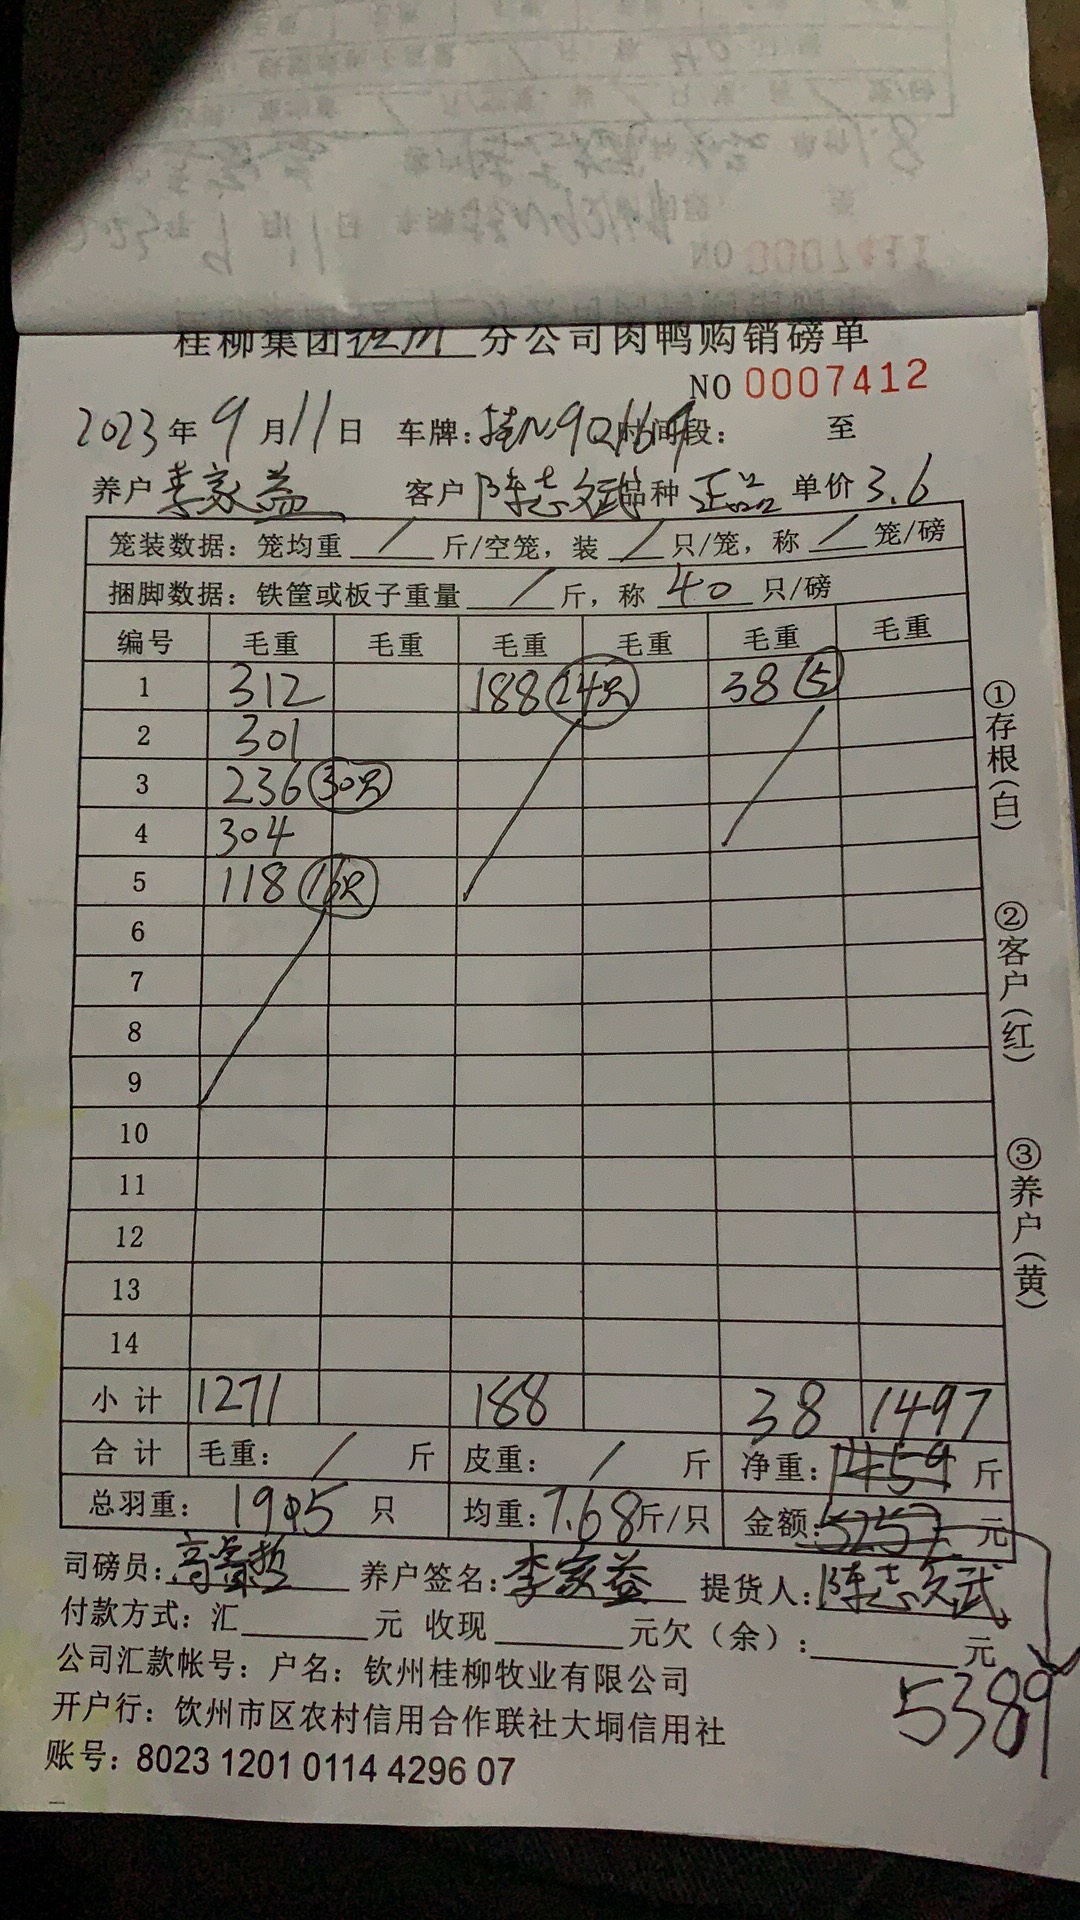 NO 0007411
桂柳集团 分公司肉鸭购销磅单
NO 0007412
2023年9月11日 车牌:桂N9Q169 时间段: 至
养户 李家益 客户 陈志文武 品种 正品 单价 3.6
笼装数据:笼均重 / 斤/空笼,装 / 只/笼,称 / 笼/磅
捆脚数据:铁筐或板子重量 / 斤,称 40 只/磅
编号 毛重 毛重 毛重 毛重 毛重 毛重
1 312 188 24只 38 5
2 301
3 236 30只
4 304
5 118 16只
6
7
8
9
10
11
12
13
14
小计 1271 188 38 1497
合计 毛重: / 斤 皮重: / 斤 净重:1459 斤
总羽重: 195 只 均重:7.68斤/只 金额:5257 元
司磅员: 养户签名:李家益 提货人:陈志文武
付款方式:汇 元 收现 元欠(余): 元
5389
公司汇款帐号:户名:钦州桂柳牧业有限公司
开户行:钦州市区农村信用合作联社大垌信用社
账号:8023 1201 0114 4296 07
①存根(白)
②客户(红)
③养户(黄)